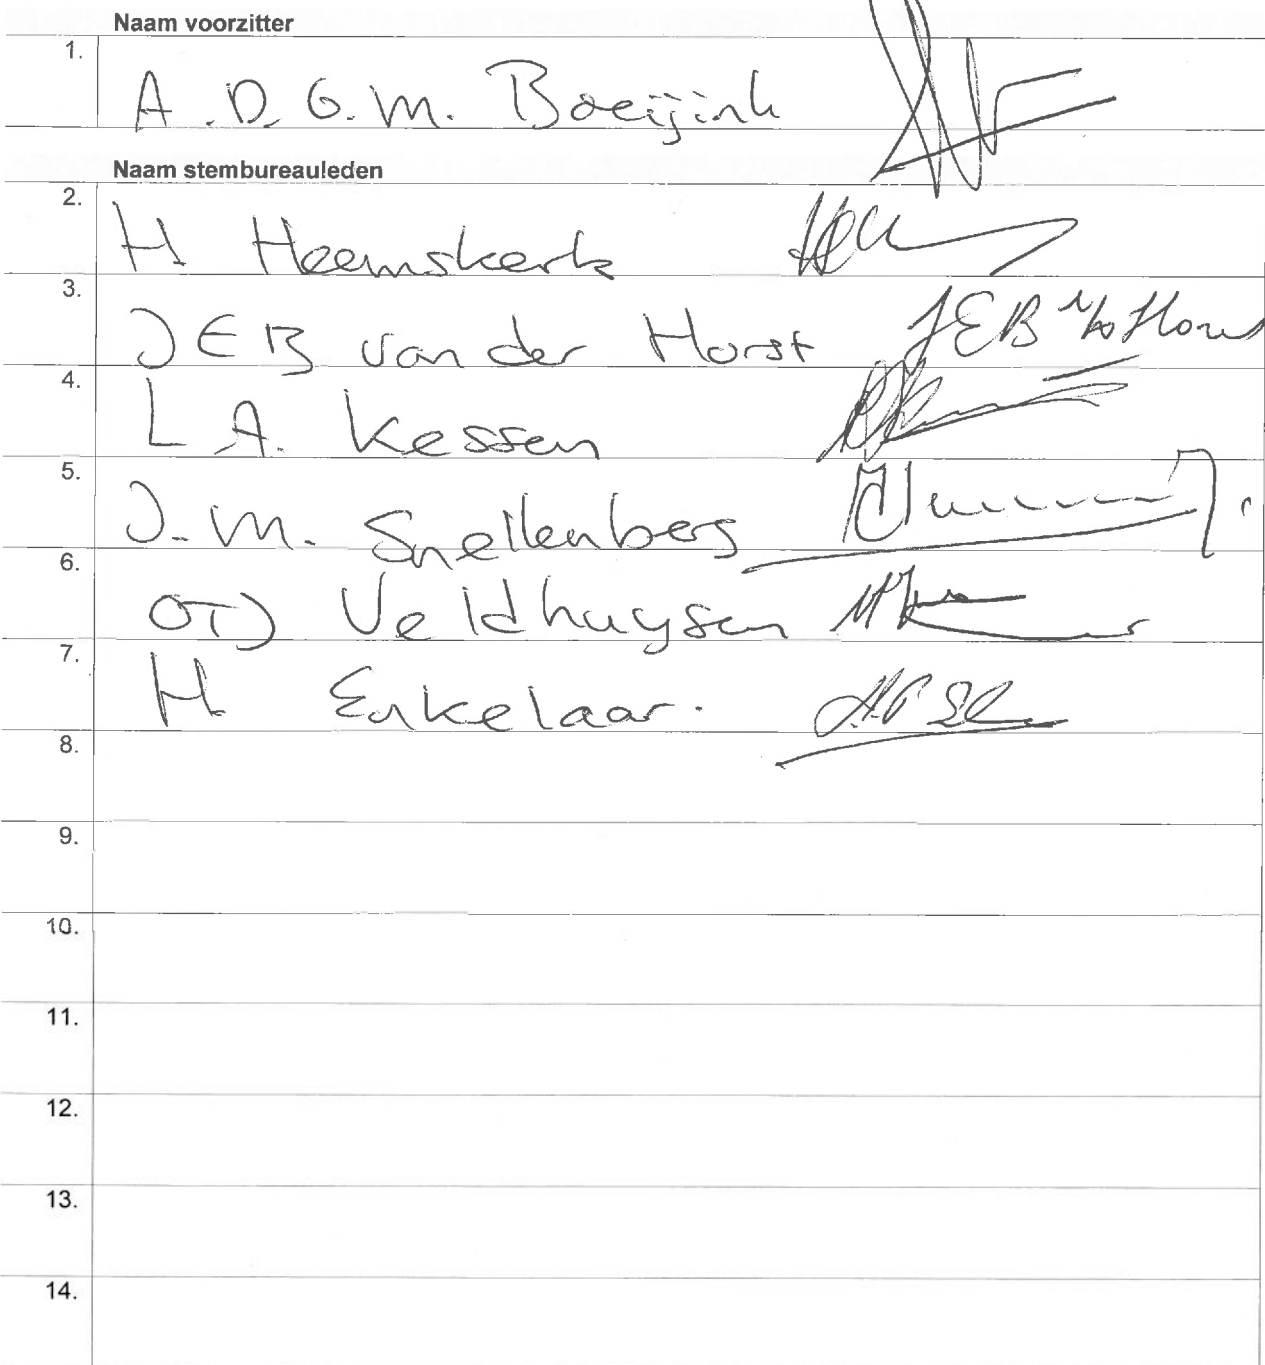 Naam voorzitter
1. A.D.G.M. Boeijink
Naam stembureauleden
2. H Heemskerk
3. J E B van der Horst JEB v/d Horst
4. L A. Kessen
5. J.M. Snellenberg
6. OTD Veldhuysen
7. H Enkelaar.
8.
9.
10.
11.
12.
13.
14.